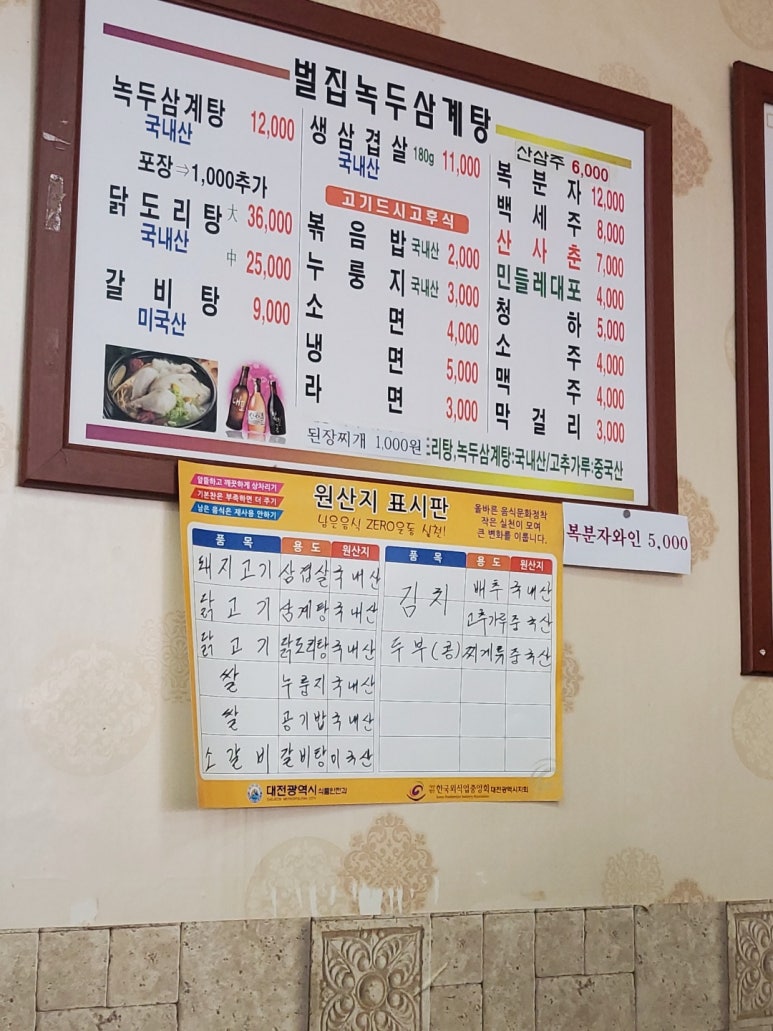 벌집녹두삼계탕
녹두삼계탕 12,000
국내산
포장⇒1,000추가
닭도리탕 大 36,000
국내산
中 25,000
갈비탕 9,000
미국산
생삼겹살 180g 11,000
국내산
고기드시고후식
볶음밥 국내산 2,000
누룽지 국내산 3,000
소면 4,000
냉면 5,000
라면 3,000
된장찌개 1,000원
산삼주 6,000
복분자 12,000
백세주 8,000
산사춘 7,000
민들레대포 4,000
청하 5,000
소주 4,000
맥주 4,000
막걸리 3,000
도리탕,녹두삼계탕:국내산/고추가루:중국산
복분자와인 5,000
알뜰하고 깨끗하게 상차리기
기본찬은 부족하면 더 주기
남은 음식은 재사용 안하기
원산지 표시판
남은음식 ZERO운동 실천!
올바른 음식문화정착
작은 실천이 모여
큰 변화를 이룹니다.
품목 용도 원산지
돼지고기 삼겹살 국내산
닭고기 삼계탕 국내산
닭고기 닭도리탕 국내산
쌀 누룽지 국내산
쌀 공기밥 국내산
소갈비 갈비탕 미국산
품목 용도 원산지
김치 배추 국내산
고추가루 중국산
두부(콩) 찌게류 중국산
대전광역시 식품안전과
한국외식업중앙회 대전광역시지회